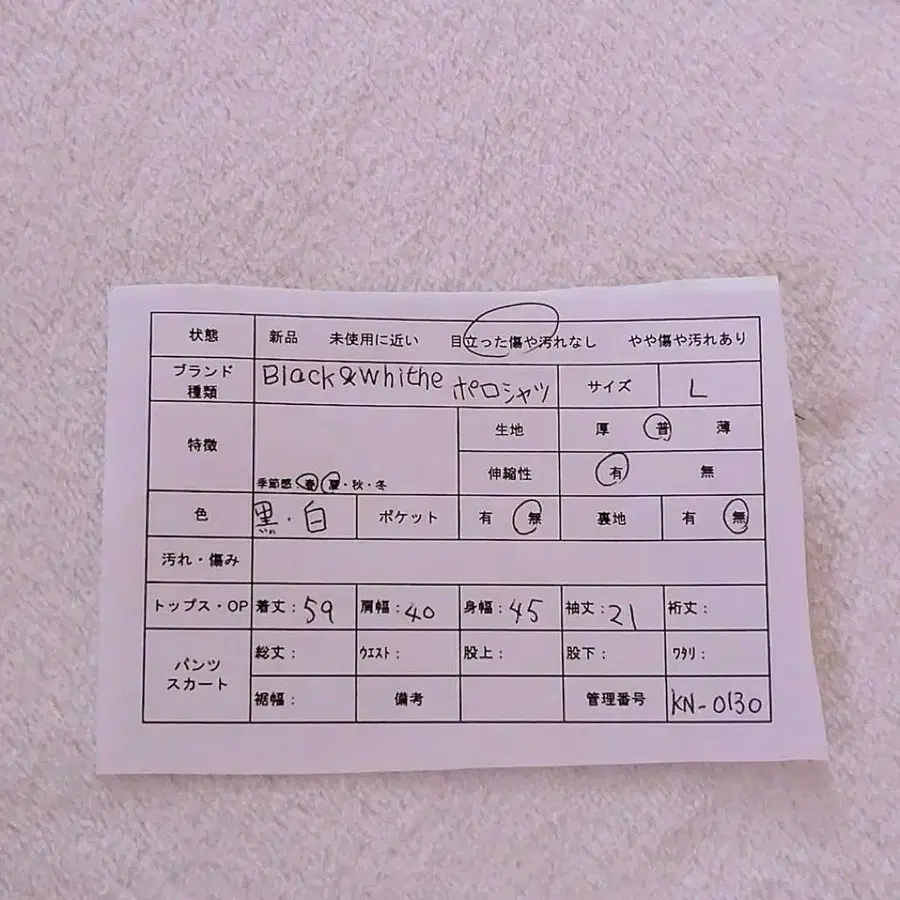 状態 新品 未使用に近い 目立った傷や汚れなし やや傷や汚れあり
ブランド 種類 Black&Whithe ポロシャツ サイズ L
特徴 季節感 春・夏・秋・冬 生地 厚 普 薄
伸縮性 有 無
色 黒・白 ポケット 有 無 裏地 有 無
汚れ・傷み
トップス・OP 着丈:59 肩幅:40 身幅:45 袖丈:21 裄丈:
パンツ スカート 総丈: ウエスト: 股上: 股下: ワタリ:
裾幅: 備考 管理番号 KN-0130